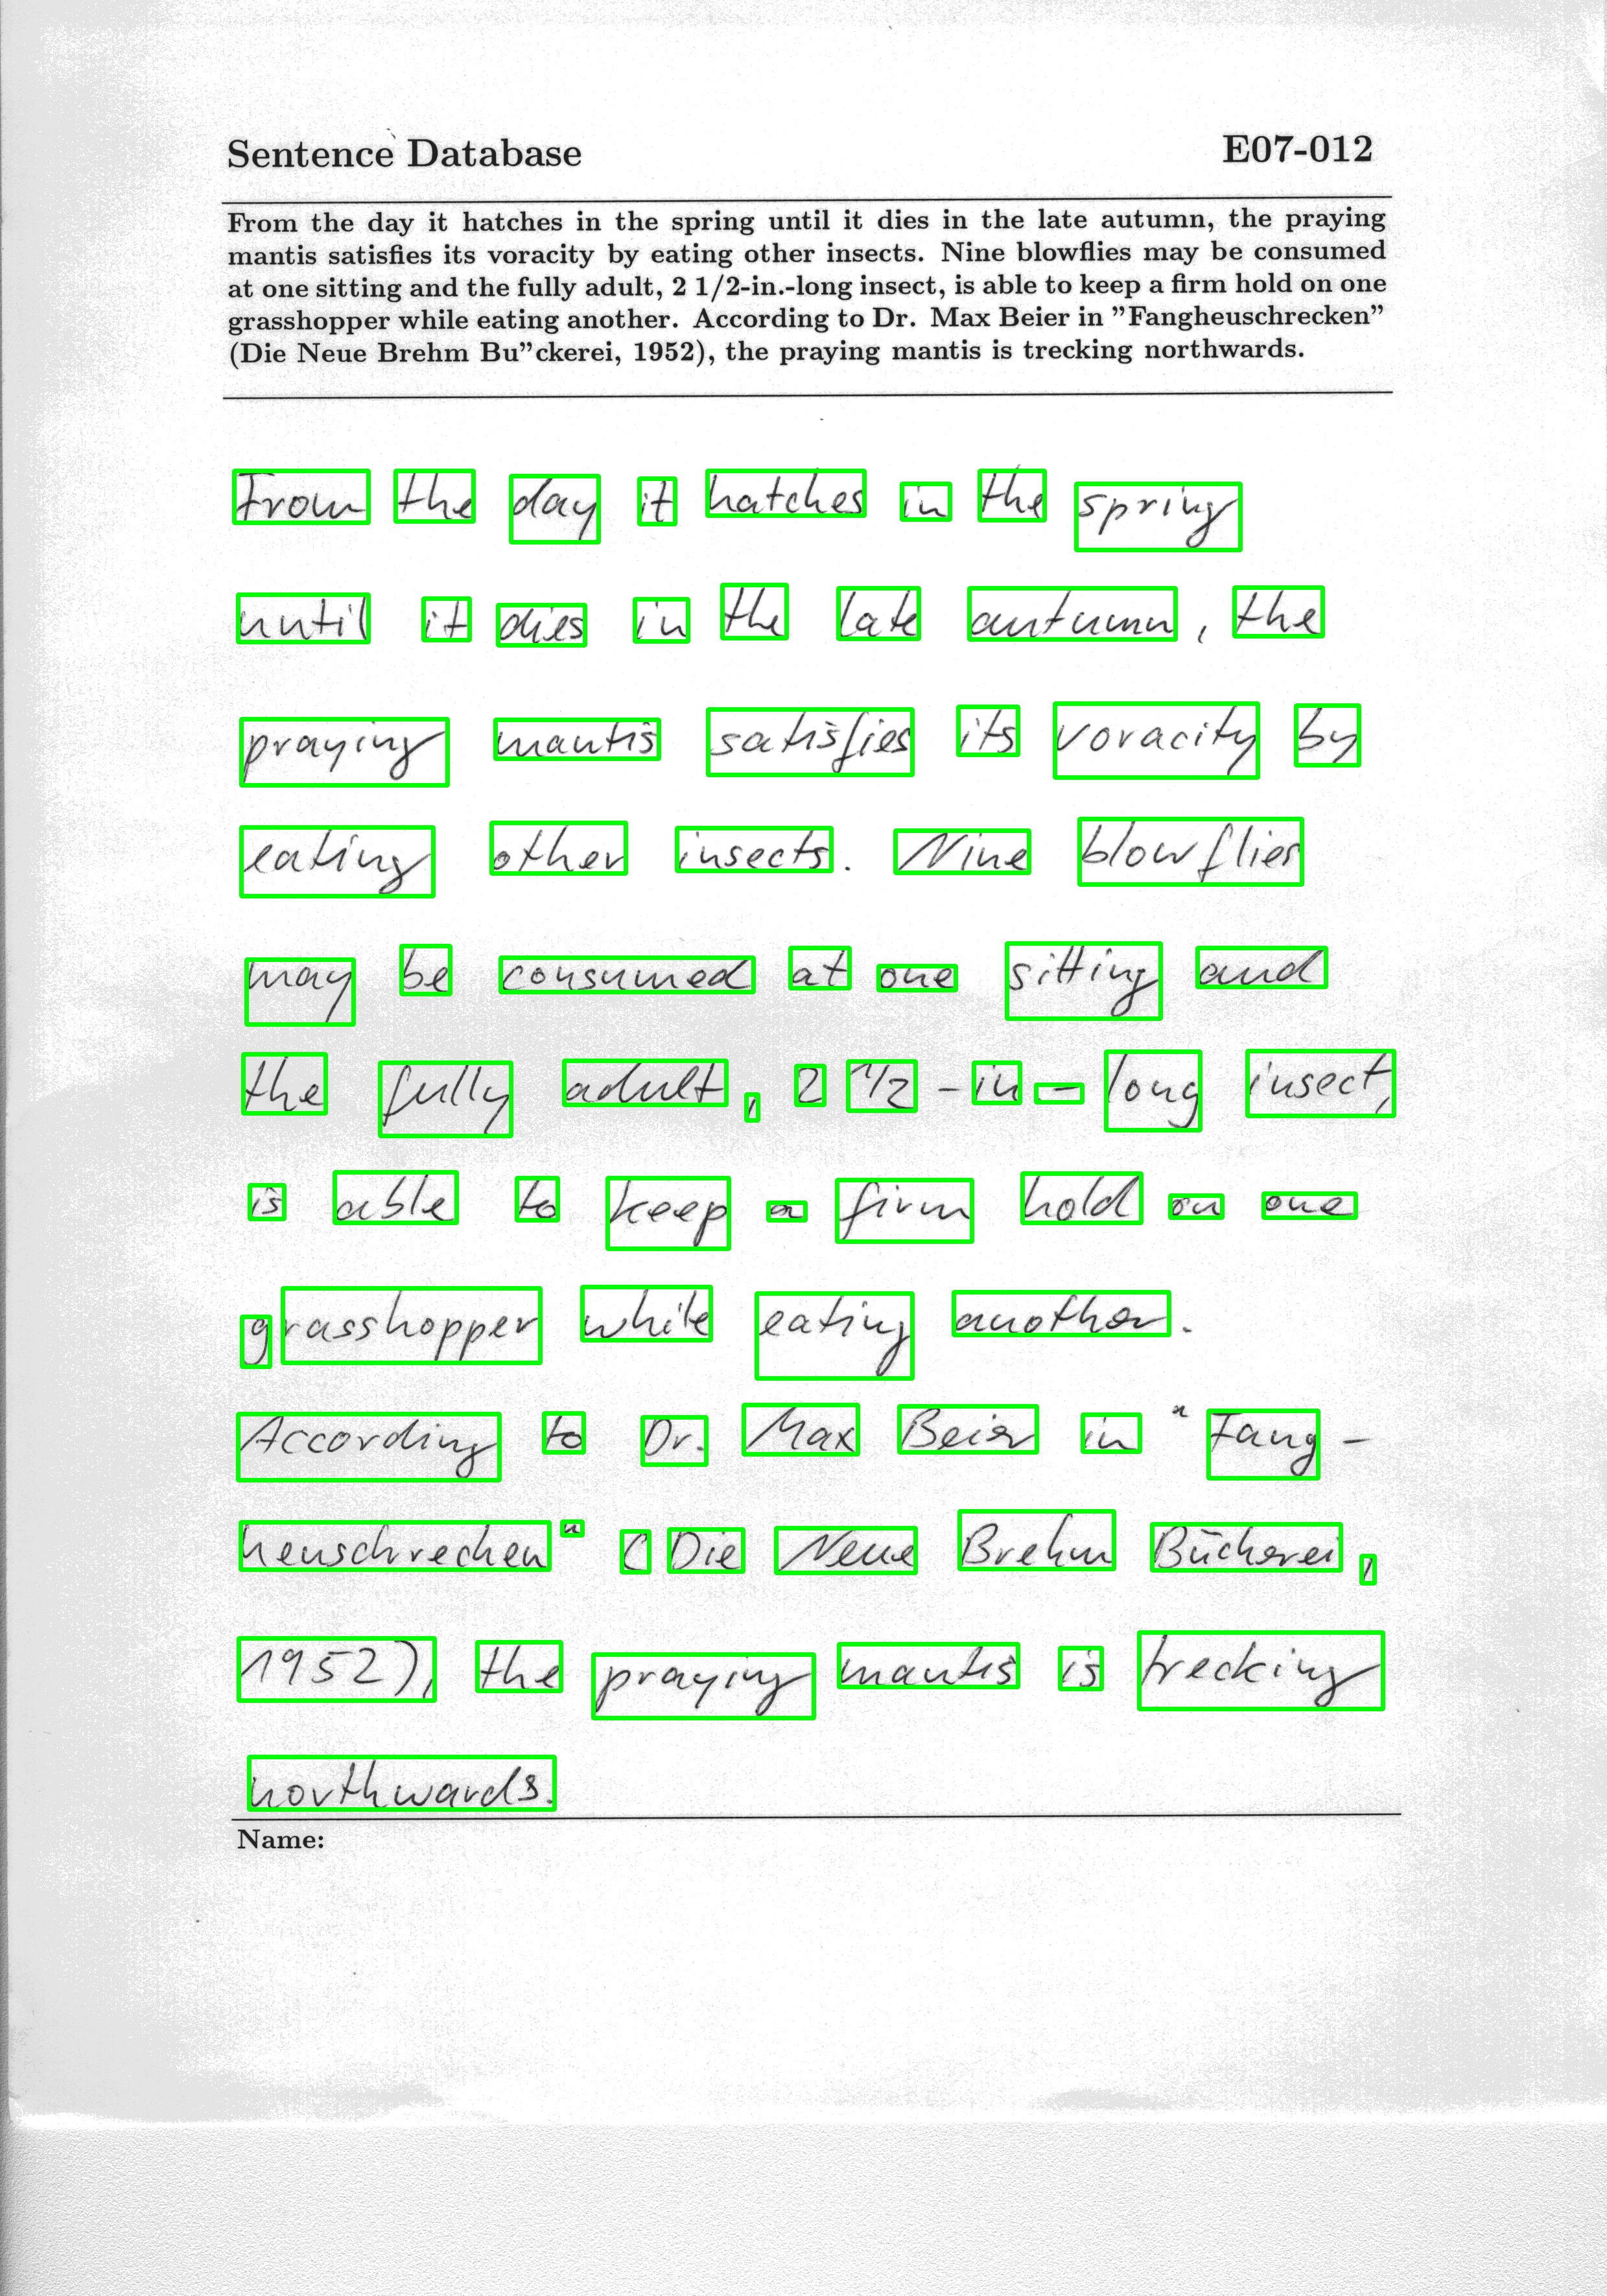 Sentence Database E07-012
From the day it hatches in the spring until it dies in the late autumn, the praying
mantis satisfies its voracity by eating other insects. Nine blowflies may be consumed
at one sitting and the fully adult, 2 1/2-in.-long insect, is able to keep a firm hold on one
grasshopper while eating another. According to Dr. Max Beier in ”Fangheuschrecken”
(Die Neue Brehm Bu”ckerei, 1952), the praying mantis is trecking northwards.
From the day it hatches in the spring
until it dies in the late autumn, the
praying mantis satisfies its voracity by
eating other insects. Nine blowflies
may be consumed at one sitting and
the fully adult, 2 1/2 - in - long insect,
is able to keep a firm hold on one
grasshopper while eating another.
According to Dr. Max Beier in "Fang-
heuschrecken" (Die Neue Brehm Bücherei,
1952), the praying mantis is trecking
northwards.
Name: